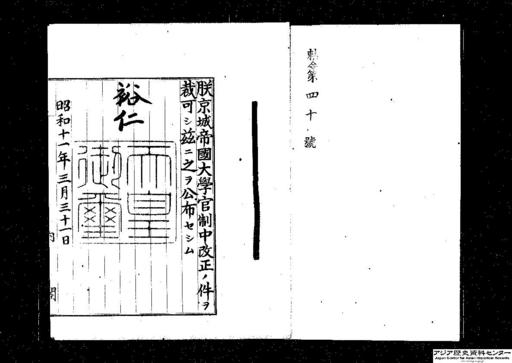 勅令第四十號
朕京城帝國大學官制中改正ノ件ヲ
裁可シ茲ニ之ヲ公布セシム
裕仁
天皇
御璽
昭和十一年三月三十一日
アジア歴史資料センター
Japan Center for Asian Historical Records